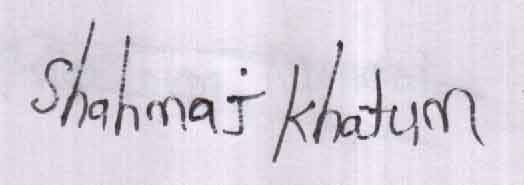 Shahmaj Khatum